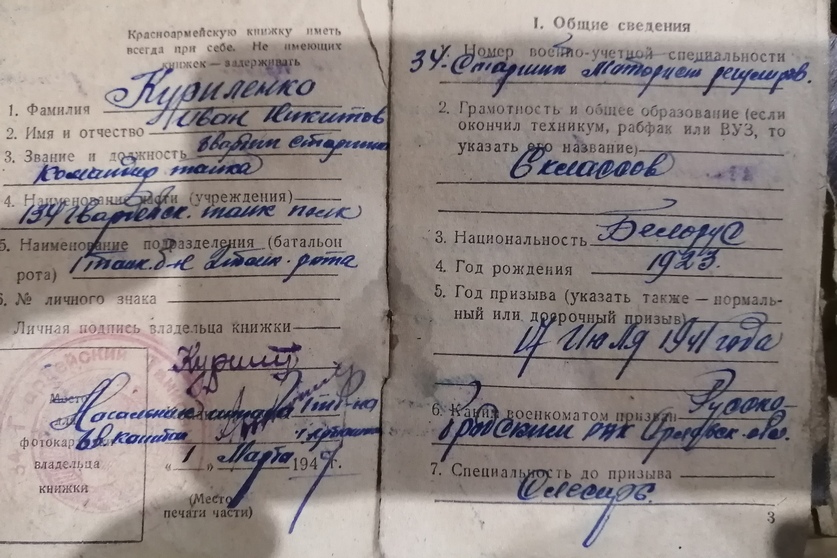 Красноармейскую книжку иметь
всегда при себе. Не имеющих
книжек — задерживать
1. Фамилия Куриленко
2. Имя и отчество Иван Никитов
3. Звание и должность гвардии старшина
командир танка
4. Наименование части (учреждения)
134 гвардейск. танк полк
5. Наименование подразделения (батальон
рота) 1 танк. б-н 2 танк. рота
6. № личного знака
Личная подпись владельца книжки
Место
для
фотокарточки
владельца
книжки
Начальник штаба 1 тб-на
гв. капитан
« 1 » Марта 1947 г.
(Место
печати части)
I. Общие сведения
1. Номер военно-учетной специальности
34. Старший Моторист регулиров.
2. Грамотность и общее образование (если
окончил техникум, рабфак или ВУЗ, то
указать его название)
6 классов
3. Национальность Белорус
4. Год рождения 1923.
5. Год призыва (указать также — нормаль-
ный или досрочный призыв)
17 Июля 1941 года
6. Каким военкоматом призван
7. Специальность до призыва
Слесарь.
3